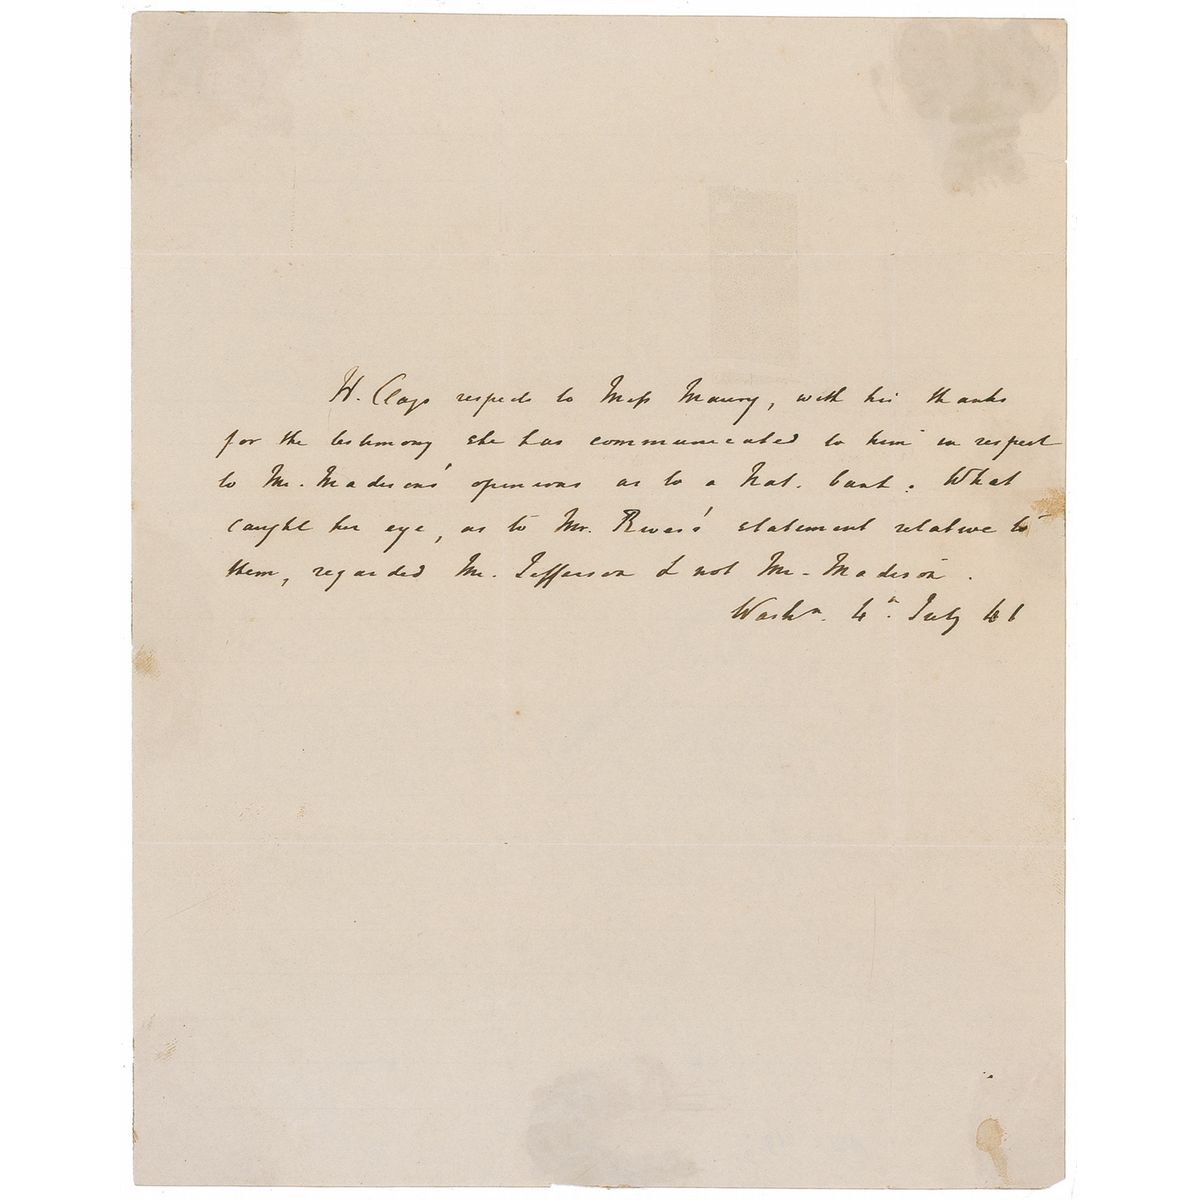 H. Clays respects to Miss Maury, with his thanks
for the testimony she has communicated to him in respect
to Mr. Madison's opinions as to a Nat. bank. What
caught her eye, as to Mr. Rives's statement relative to
them, regarded Mr. Jefferson & not Mr. Madison.
Washn. 4h. July 41